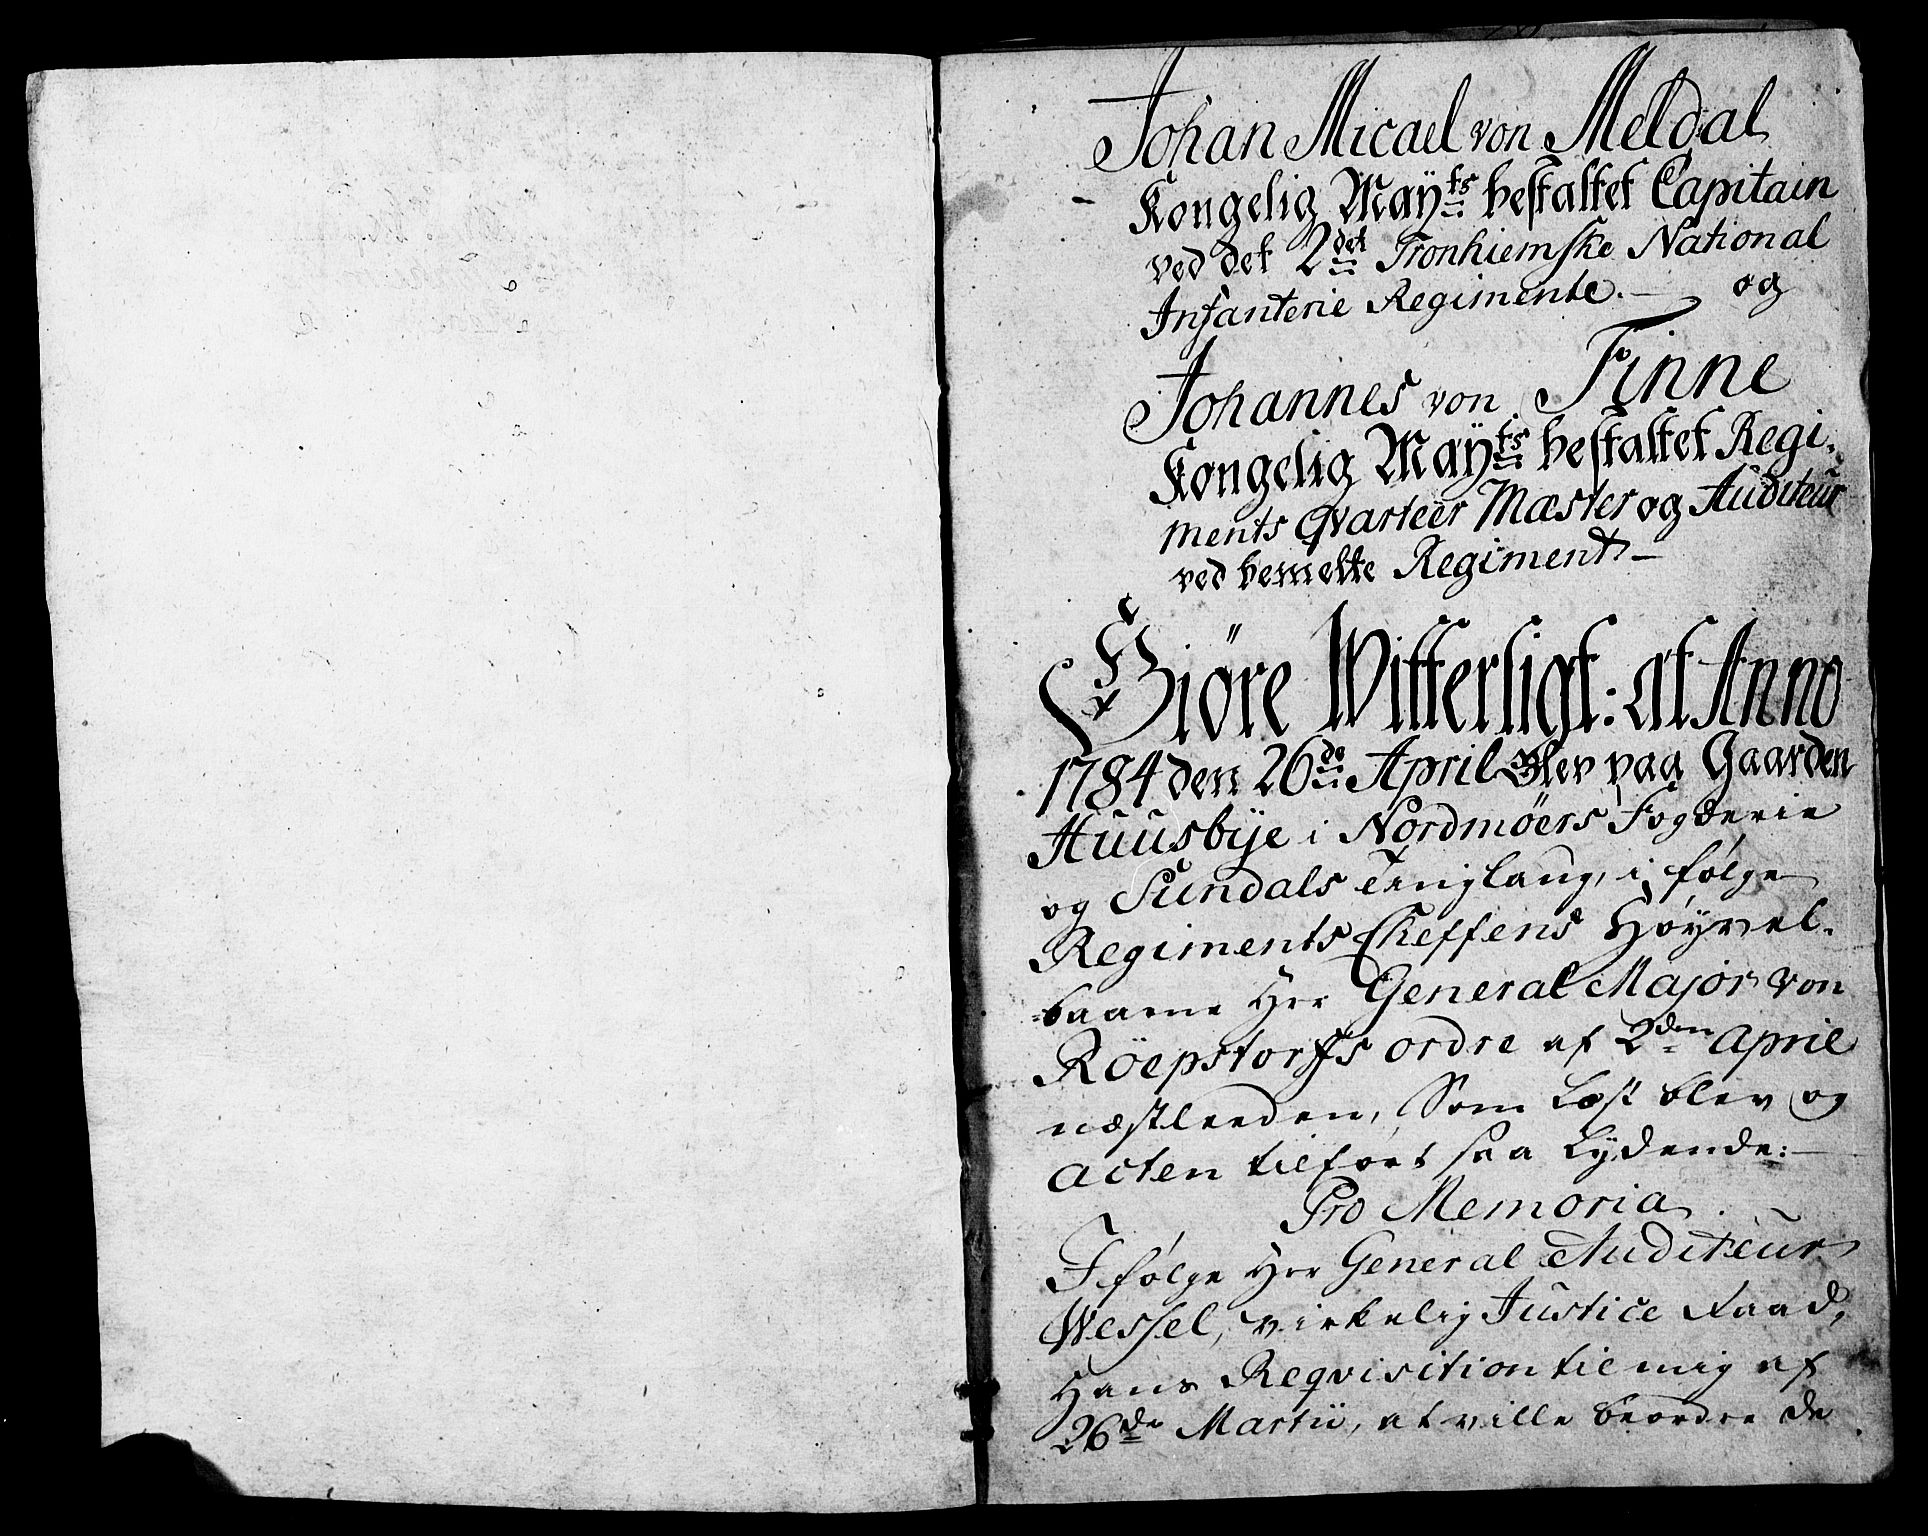 Johan Micael von Meldal
Kongelig Mayts bestaltet Capitain
ved det 2det Tronhiemske National
Infanterie Regimente. — og
Johannes von Finne
Kongelig Mayts bestaltet Regi-
ments Qvarteer Mæster og Auditeur
ved bemelte Regiment —
Giöre Witterligt: at Anno
1784 den 26de April Blev paa Gaarden
Huusbÿe i Nordmöers Fogderie
og Sundals Tinglaug, i følge
Regiments Cheffens Høyvel-
=baarne Her General Major von
Röepstorffs ordre af 2den April
næstleeden, Som Læst blev og
acten tilført saa Lydende: —
Pro Memoria.
I følge Her General Auditeur
Wessel, virkelig Justice Raad,
Hans Reqvisition til mig af
26de Martii, at ville beordre de